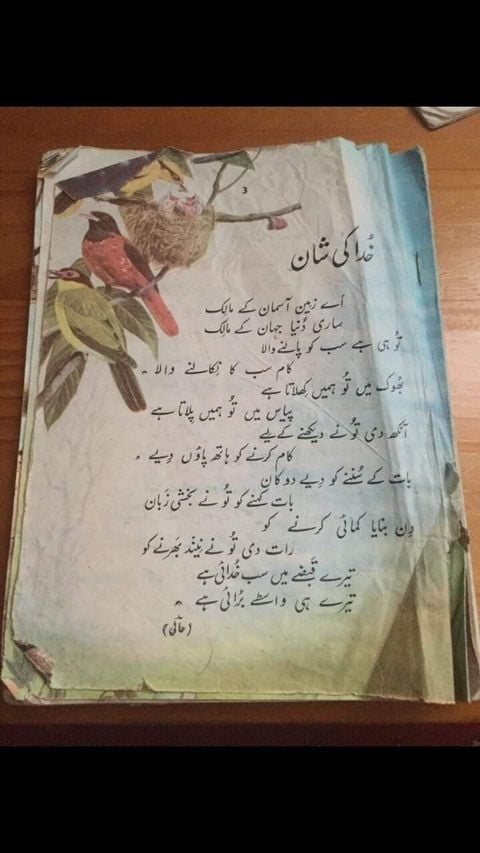 3
خُدا کی شان
اَے زمین آسمان کے مالِک
ساری دُنیا جہان کے مالِک
تُو ہی ہے سب کو پالنے والا
کام سب کا نِکالنے والا
بھُوک میں تُو ہمیں کھِلاتا ہے
پیاس میں تُو ہمیں پِلاتا ہے
آنکھ دی تُو نے دیکھنے کے لیے
کام کرنے کو ہاتھ پاؤں دِیے
بات کے سُننے کو دِیے دو کان
بات کہنے کو تُو نے بخشی زَبان
دِن بنایا کمائی کرنے کو
رات دی تُو نے نیِند بھَرنے کو
تیرے قَبضے میں سب خُدائی ہے
تیرے ہی واسطے بڑائی ہے
(حالؔی)